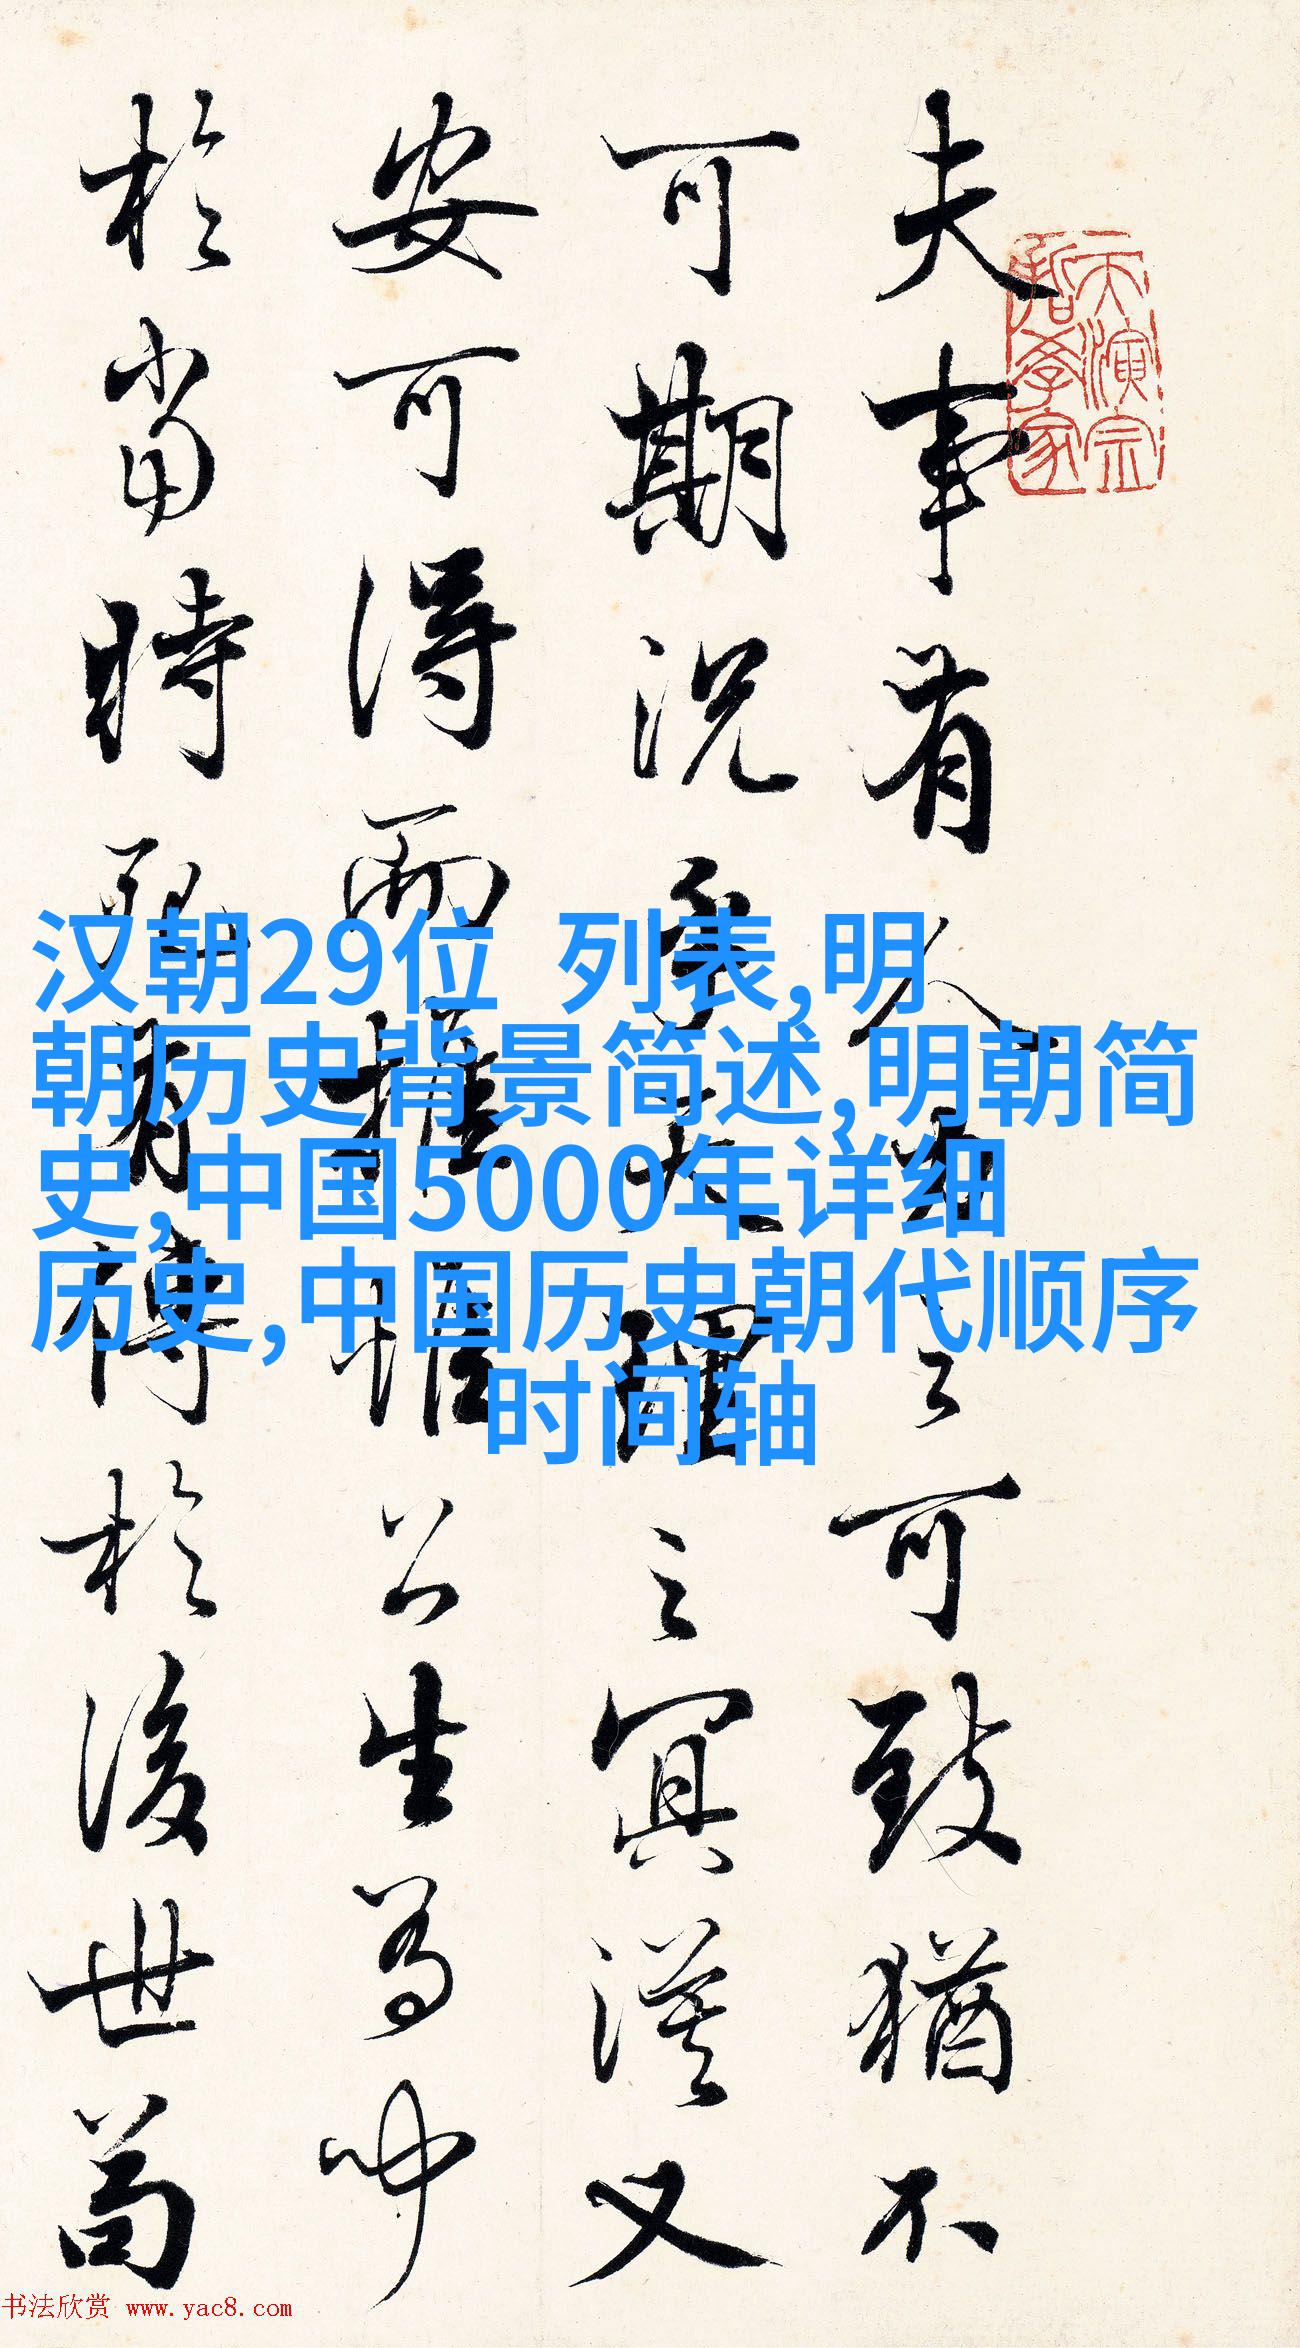 夫事有人力之可致猶不
可期況乎天理之冥漠又
安可得而推惟公生為
於當時死有傳於後世苟
天演宗
哲學家
汉朝29位 列表,明
朝历史背景简述,明朝简
史,中国5000年详细
历史,中国历史朝代顺序
时间轴
书法欣赏 www.yac8.com